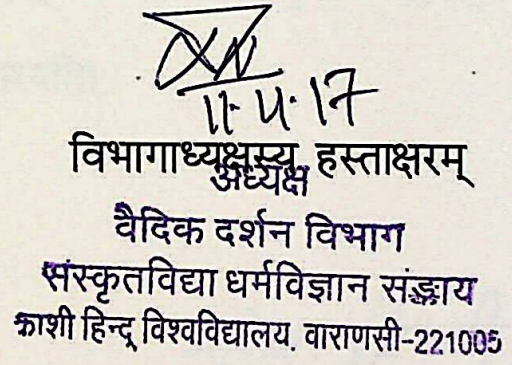 11.4.17
विभागाध्यक्षस्य हस्ताक्षरम्
अध्यक्ष
वैदिक दर्शन विभाग
संस्कृतविद्या धर्मविज्ञान संङ्काय
काशी हिन्दू विश्वविद्यालय, वाराणसी-221005